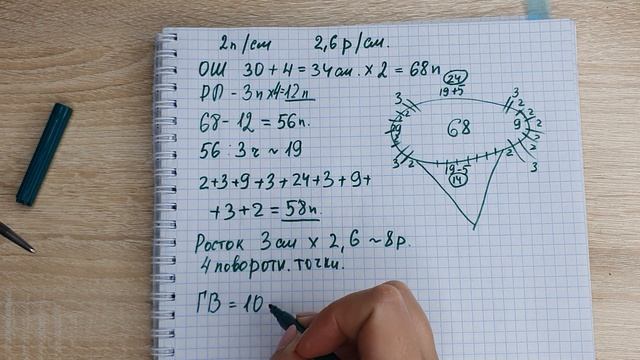 2п/см 2,6р/см.
ОШ 30+4=34см. x2=68п
РЛ - 3п x4=12п
68-12=56п.
56:3ч ~19
2+3+9+3+24+3+9+
+3+2=58п.
Росток 3см x 2,6 ~8р.
4 поворотн. точки.
ГВ = 10
24
19+5
3 3
2 2
68
9 9
2 2 2 2
3 2 2 3
19-5
14